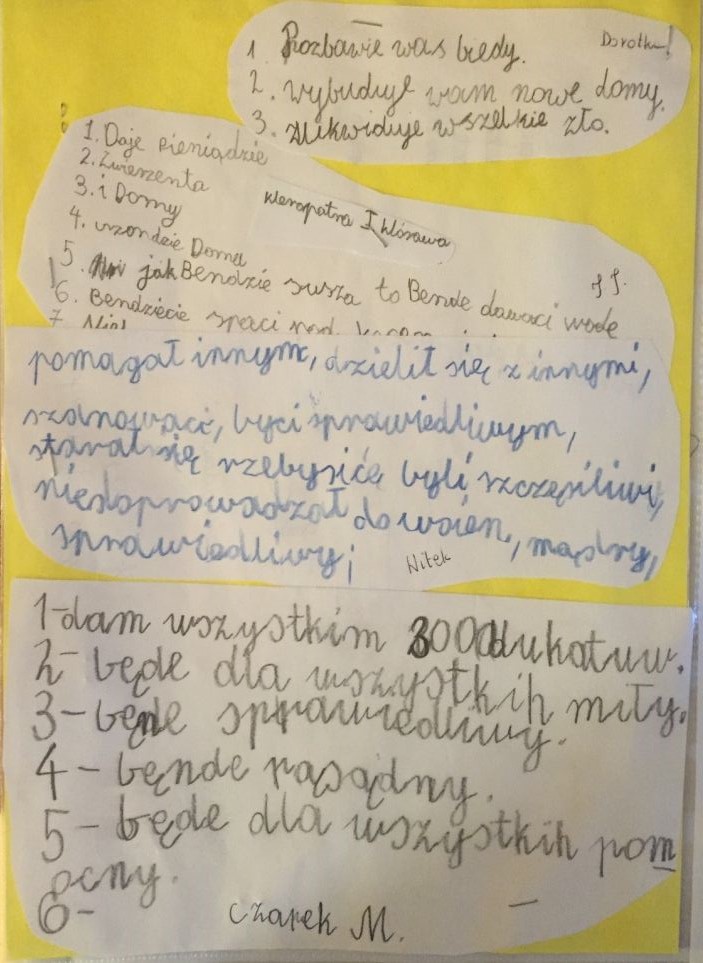 1. Rozbawie was biedy. Dorotka!
2. wybuduje wam nowe domy.
3. zlikwiduje wszelkie zło.
1. Daje pieniądzie
2. Zwierzenta
3. i Domy
kleropatra I
4. urzondzie Doma
5. jak Bendzie susza to Bende dawaci wode
J J.
6. Bendziecie spaci nod
7.
pomagał innym, dzielił się z innymi,
szanowaci, byci sprawiedliwym,
starał się rzebyście byli szczęśliwi,
niedoprowadzał do woien, mądry,
sprawiedliwy; Witek
1-dam wszystkim 3000dukatuw.
2- będe dla wszystkih miły.
3- będe sprawiedliwy.
4- bęnde rąsądny.
5- będe dla wszystkih pom
ocny.
6- Czarek M.